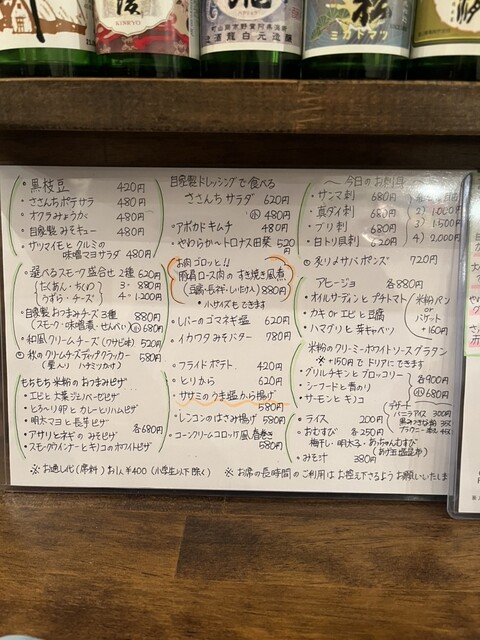 KINRYO
ミカドマツ
・黒枝豆 420円
・ささんちポテサラ 480円
・オクラみょうが 480円
・自家製みそキュー 480円
・サツマイモとクルミの
味噌マヨサラダ 480円
・選べるスモーク盛合せ 2種 620円
(たくあん・ちくわ 3・880円
うずら・チーズ) 4・1,200円
・自家製おつまみチーズ3種 880円
(スモーク・味噌煮・せんべい) 小680円
・和風クリームチーズ(ワサビ味) 520円
・秋のクリームチーズディッククラッカー 580円
もちもち 米粉のおつまみピザ
・エビと大葉ジェノバーゼピザ
・とろ〜り卵とカレーとハムピザ
・明太マヨと長芋ピザ
・アサリとネギのみそピザ 各680円
・スモークウインナーとキノコのホワイトピザ
自家製ドレッシングで食べる
ささんちサラダ 620円
小 480円
・アボカドキムチ 480円
・やわらか〜トロナス田楽 520円
お肉ゴロッと!!
豚肩ロース肉のすき焼き風煮
880円
・ハサイズもできます
・レバーのゴマネギ塩 620円
・イカワタみそバター 780円
・フライドポテト 420円
・とり皮ら 620円
・ササミのうま塩から揚げ
580円
・レンコンのはさみ揚げ 580円
・コーンクリームコロッケ風春巻き
580円
〜今日のお刺身〜
・サンマ刺 680円
・真ダイ刺 680円 2) 1,000円
・ブリ刺 680円 3) 1,500円
・白トリ貝刺 620円 4) 2,000円
・炙りメサバポンズ 720円
アヒージョ 各880円
・オイルサーディンとプチトマト
・カキ or エビと豆腐
・ハマグリと芽キャベツ
米粉パン
or
バケット
+160円
米粉のクリーミーホワイトソースグラタン
※+160円でドリアにできます
・グリルチキンとブロッコリー
・シーフードと香り
・サーモンとキノコ
各900円
小680円
デザート
バニラアイス 300円
・ライス 200円
・おむすび 各250円
梅干し・明太子・
・みそ汁 380円
※お通し代(席料)お1人¥400(小学生以下除く) ※お席の長時間のご利用はお控え下さるようお願いいたしま